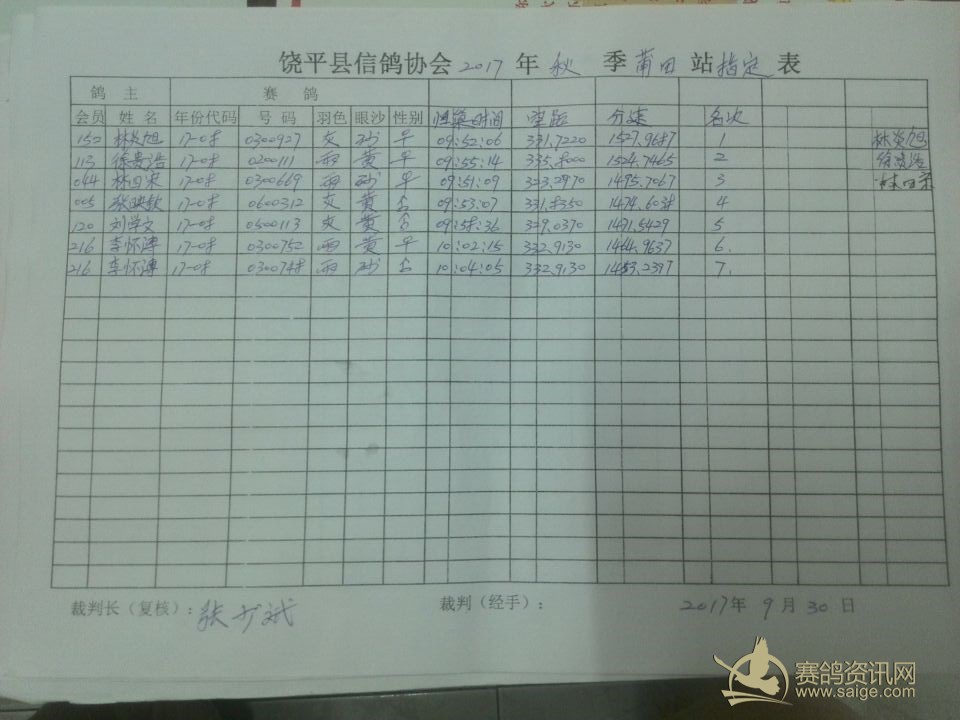 饶平县信鸽协会2017年秋季莆田站指定表
鸽主 赛鸽
会员 姓名 年份代码 号码 羽色 眼沙 性别 归巢时间 空距 分速 名次
152 林炎旭 17-08 0300927 灰 砂 早 09:52:06 331.7220 1527.9687 1 林炎旭
113 徐贵浩 17-08 0200111 雨 黄 早 09:55:14 335.8000 1524.7465 2 徐贵浩
044 林四荣 17-08 0300669 雨 砂 早 09:51:09 323.2970 1495.7067 3 林四荣
005 张映钦 17-08 0600312 灰 黄 否 09:53:07 331.8350 1474.6038 4
120 刘学文 17-08 0500113 灰 黄 否 09:58:36 329.0370 1471.5429 5
216 李怀津 17-08 0300752 雨 黄 早 10:02:15 332.9130 1464.9637 6.
216 李怀津 17-08 0300748 雨 砂 否 10:04:05 332.9130 1453.2397 7.
裁判长(复核): 张少斌 裁判(经手): 2017年9月30日
赛鸽资讯网
www.saige.com